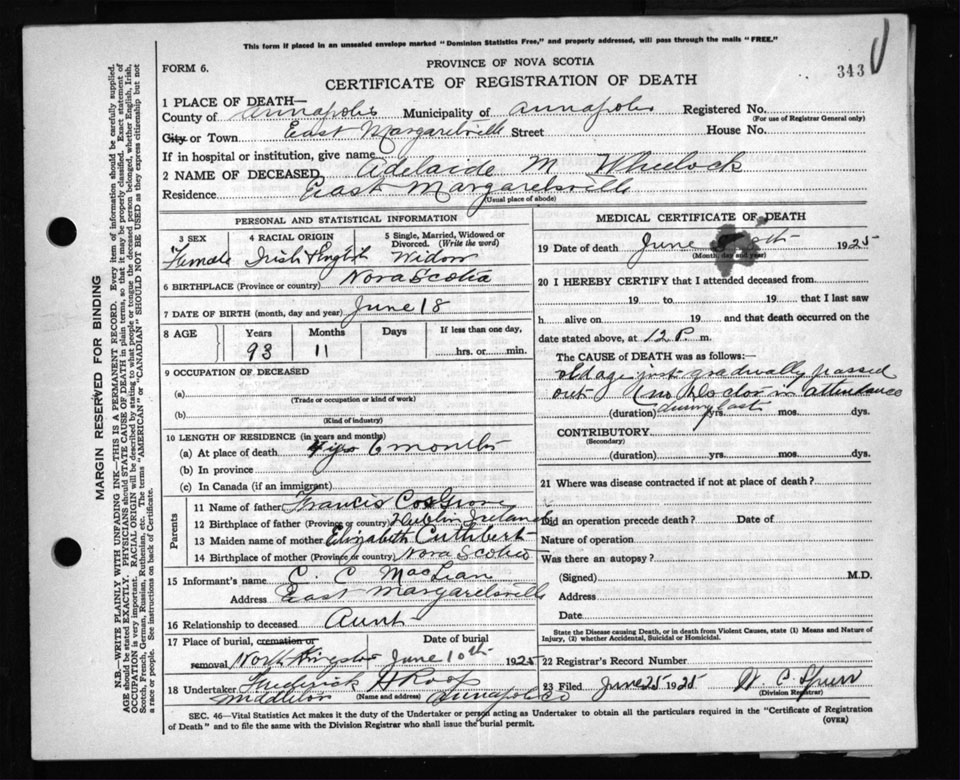 This form if placed in an unsealed envelope marked "Dominion Statistics Free," and properly addressed, will pass through the mails "FREE."
FORM 6.
PROVINCE OF NOVA SCOTIA
343
CERTIFICATE OF REGISTRATION OF DEATH
1 PLACE OF DEATH—
County of Annapolis Municipality of Annapolis Registered No.
(For use of Registrar General only)
City or Town East Margaretsville Street House No.
If in hospital or institution, give name
2 NAME OF DECEASED Adelaide M Wheelock
Residence East Margaretsville
(Usual place of abode)
PERSONAL AND STATISTICAL INFORMATION
3 SEX 4 RACIAL ORIGIN 5 Single, Married, Widowed or Divorced. (Write the word)
Female Irish & English Widow
6 BIRTHPLACE (Province or country) Nova Scotia
7 DATE OF BIRTH (month, day and year) June 18
8 AGE Years Months Days If less than one day,
93 11 hrs. or min.
9 OCCUPATION OF DECEASED
(a)
(Trade or occupation or kind of work)
(b)
(Kind of industry)
10 LENGTH OF RESIDENCE (in years and months)
(a) At place of death 4 yrs 6 months
(b) In province
(c) In Canada (if an immigrant)
Parents
11 Name of father Francis Cosgrove
12 Birthplace of father (Province or country) Dublin Ireland
13 Maiden name of mother Elizabeth Cuthbert
14 Birthplace of mother (Province or country) Nova Scotia
15 Informant's name C. C MacLean
Address East Margaretsville
16 Relationship to deceased Aunt
17 Place of burial, cremation or removal North Kingston
Date of burial June 10th 1925
18 Undertaker Frederick H Roop
Middleton (Name and address) Annapolis Co
MEDICAL CERTIFICATE OF DEATH
19 Date of death June 1925
(Month, day and year)
20 I HEREBY CERTIFY that I attended deceased from
19 to 19 that I last saw
h alive on 19 and that death occurred on the
date stated above, at 12 P. m.
The CAUSE of DEATH was as follows:—
old age just gradually passed
out (no Doctor in attendance
(duration) during last yrs. mos. dys.
CONTRIBUTORY
(Secondary)
(duration) yrs. mos. dys.
21 Where was disease contracted if not at place of death?
Did an operation precede death? Date of
Nature of operation
Was there an autopsy?
(Signed) M.D.
Address
Date
State the Disease causing Death, or in death from Violent Causes, state (1) Means and Nature of Injury, (2) whether Accidental, Suicidal or Homicidal.
22 Registrar's Record Number
23 Filed June 25 1925 W C Spurr
(Division Registrar)
SEC. 46—Vital Statistics Act makes it the duty of the Undertaker or person acting as Undertaker to obtain all the particulars required in the "Certificate of Registration
of Death" and to file the same with the Division Registrar who shall issue the burial permit.
(OVER)
MARGIN RESERVED FOR BINDING
N.B.—WRITE PLAINLY WITH UNFADING INK—THIS IS A PERMANENT RECORD. Every item of information should be carefully supplied.
AGE should be stated EXACTLY. PHYSICIANS should STATE CAUSE OF DEATH in plain terms, so that it may be properly classified. Exact statement of
OCCUPATION is very important. RACIAL ORIGIN will be described by stating to what people or tongue the deceased person belonged, whether English, Irish,
Scotch, French, German, Russian, Ruthenian, etc. The terms "AMERICAN" or "CANADIAN" SHOULD NOT BE USED as they express citizenship but not
a race or people. See instructions on back of Certificate.